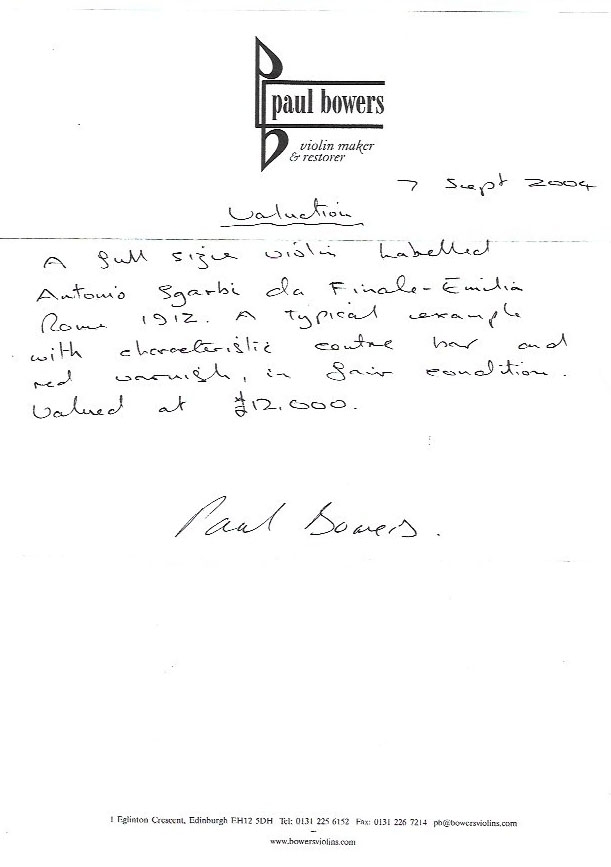 paul bowers
violin maker
& restorer
7 Sept 2004
Valuation
A full size violin labelled
Antonio Sgarbi da Finale-Emilia
Rome 1912. A typical example
with characteristic centre bar and
red varnish, in fair condition.
Valued at £12,000.
Paul Bowers.
1 Eglinton Crescent, Edinburgh EH12 5DH Tel: 0131 225 6152 Fax: 0131 226 7214 pb@bowersviolins.com
–
www.bowersviolins.com